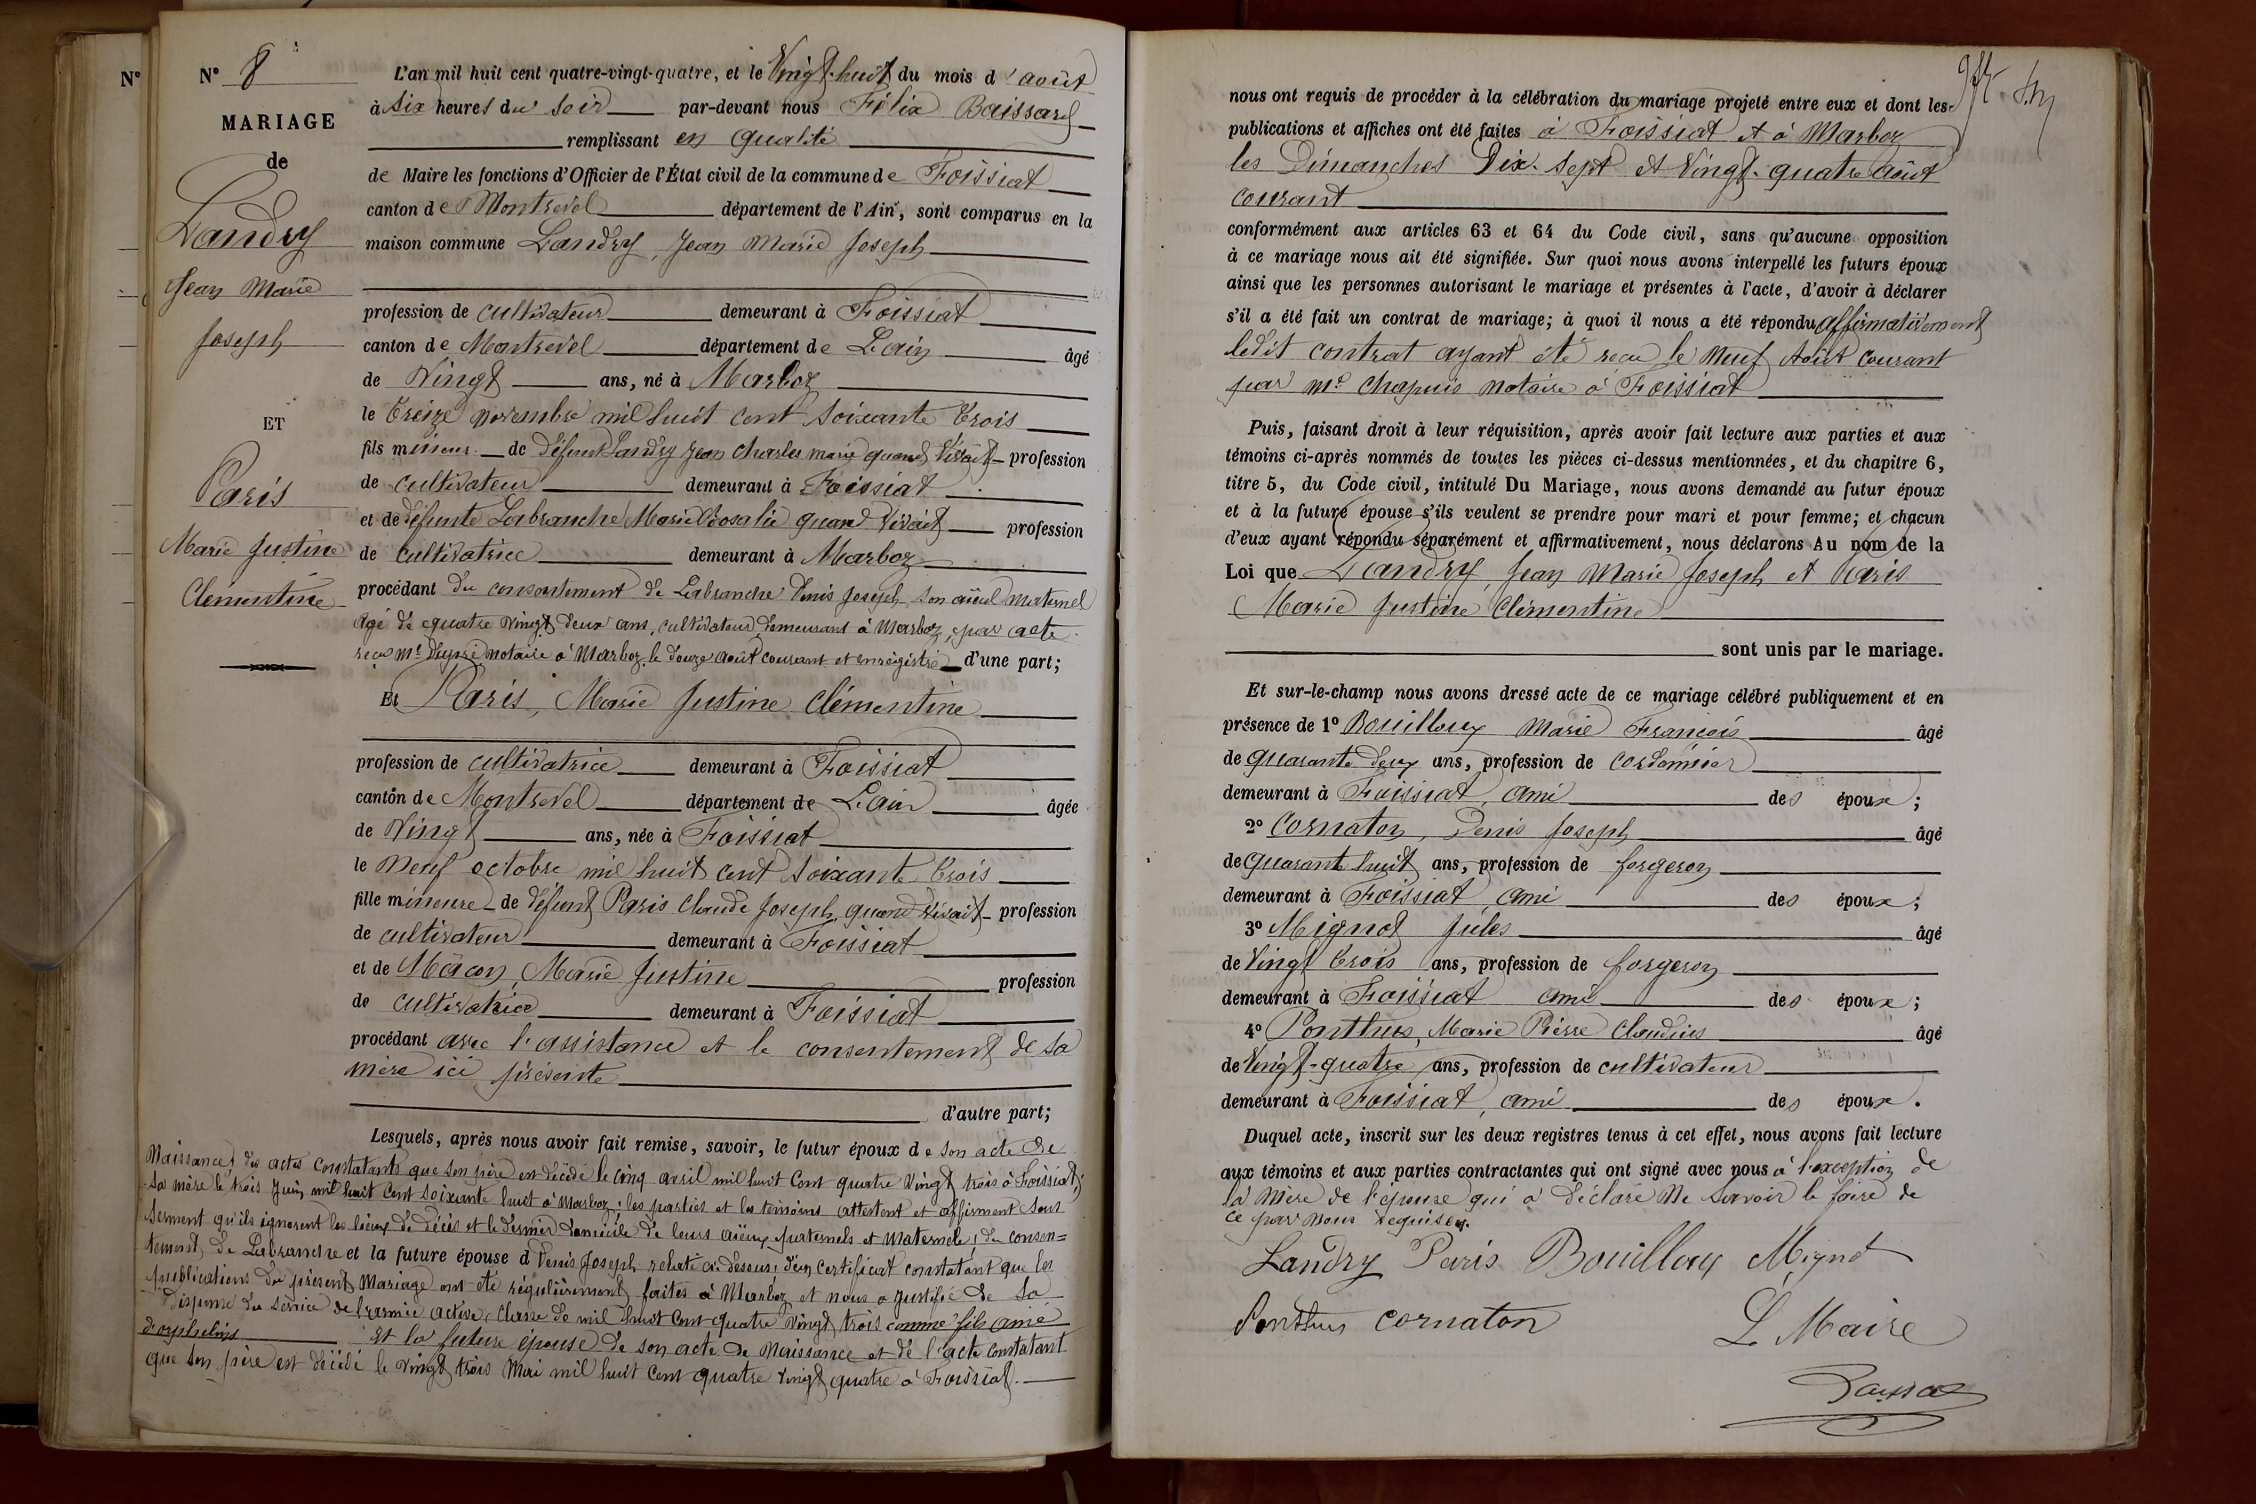 N°
N° 8
MARIAGE
de
Landry
Jean Marie
Joseph
ET
Paris
Marie Justine
Clémentine
L'an mil huit cent quatre-vingt-quatre, et le Vingt-huit du mois d'août
à six heures du soir par-devant nous Félix Baissard
remplissant en qualité
de Maire les fonctions d'Officier de l'État civil de la commune de Foissiat
canton de Montrevel département de l'Ain, sont comparus en la
maison commune Landry, Jean Marie Joseph
profession de cultivateur demeurant à Foissiat
canton de Montrevel département de L'ain âgé
de Vingt ans, né à Marboz
le treize novembre mil huit cent soixante trois
fils mineur de défunt Landry Jean Charles marie quand Vivait profession
de cultivateur demeurant à Foissiat
et de défunte Labranche Marie Rosalie quand Vivait profession
de cultivatrice demeurant à Marboz
procédant du consentement de Labranche Denis Joseph son aïeul maternel
âgé de quatre Vingt deux ans, cultivateur demeurant à Marboz, par acte
reçu Me notaire à Marboz le douze août courant et enregistré d'une part;
Et Paris, Marie Justine Clémentine
profession de cultivatrice demeurant à Foissiat
canton de Montrevel département de L'ain âgée
de Vingt ans, née à Foissiat
le Neuf octobre mil huit cent soixante trois
fille mineure de défunt Paris Claude Joseph, quand Vivait profession
de cultivateur demeurant à Foissiat
et de Mâcon, Marie Justine profession
de cultivatrice demeurant à Foissiat
procédant avec l'assistance et le consentement de sa
mère ici présente
d'autre part;
Lesquels, après nous avoir fait remise, savoir, le futur époux de son acte de
Naissance, des actes constatants que son père est décédé le cinq avril mil huit cent quatre Vingt trois à Foissiat,
sa mère le trois Juin mil huit cent soixante huit à Marboz; les parties et les témoins attestent et affirment sous
serment qu'ils ignorent les lieux de décès et le dernier domicile de leurs aïeux paternels et maternels; du consen=
tement de Labranche et la future épouse d Denis Joseph relaté ci-dessus; d'un certificat constatant que les
publications du présent Mariage ont été régulièrement faites à Marboz et nous a justifié de sa
dispense du service de l'armée active, classe de mil huit cent quatre Vingt trois comme fils aîné
d'orphelins Et la future épouse de son acte de Naissance et de l'acte constatant
que son père est décédé le Vingt trois Mai mil huit cent quatre Vingt quatre à Foissiat.
nous ont requis de procéder à la célébration du mariage projeté entre eux et dont les
publications et affiches ont été faites à Foissiat et à Marboz
les Dimanches Dix-sept et Vingt-quatre août
courant
conformément aux articles 63 et 64 du Code civil, sans qu'aucune opposition
à ce mariage nous ait été signifiée. Sur quoi nous avons interpellé les futurs époux
ainsi que les personnes autorisant le mariage et présentes à l'acte, d'avoir à déclarer
s'il a été fait un contrat de mariage; à quoi il nous a été répondu affirmativement
ledit contrat ayant été reçu le Neuf Août courant
par Me Chapuis notaire à Foissiat
Puis, faisant droit à leur réquisition, après avoir fait lecture aux parties et aux
témoins ci-après nommés de toutes les pièces ci-dessus mentionnées, et du chapitre 6,
titre 5, du Code civil, intitulé Du Mariage, nous avons demandé au futur époux
et à la future épouse s'ils veulent se prendre pour mari et pour femme; et chacun
d'eux ayant répondu séparément et affirmativement, nous déclarons Au nom de la
Loi que Landry, Jean Marie Joseph et Paris
Marie Justine Clémentine
sont unis par le mariage.
Et sur-le-champ nous avons dressé acte de ce mariage célébré publiquement et en
présence de 1° Bouilloux Marie François âgé
de quarante deux ans, profession de cordonnier
demeurant à Foissiat, ami des époux;
2° Cornaton, Denis Joseph âgé
de quarante huit ans, profession de forgeron
demeurant à Foissiat, ami des époux;
3° Mignot Jules âgé
de Vingt trois ans, profession de forgeron
demeurant à Foissiat ami des époux;
4° Ponthus, Marie Pierre Claudius âgé
de Vingt-quatre ans, profession de cultivateur
demeurant à Foissiat, ami des époux.
Duquel acte, inscrit sur les deux registres tenus à cet effet, nous avons fait lecture
aux témoins et aux parties contractantes qui ont signé avec nous à l'exception de
la Mère de l'épouse qui a déclaré Ne savoir le faire de
ce par Nous requise.
Landry Paris Bouilloux Mignot
Ponthus cornaton L Maire